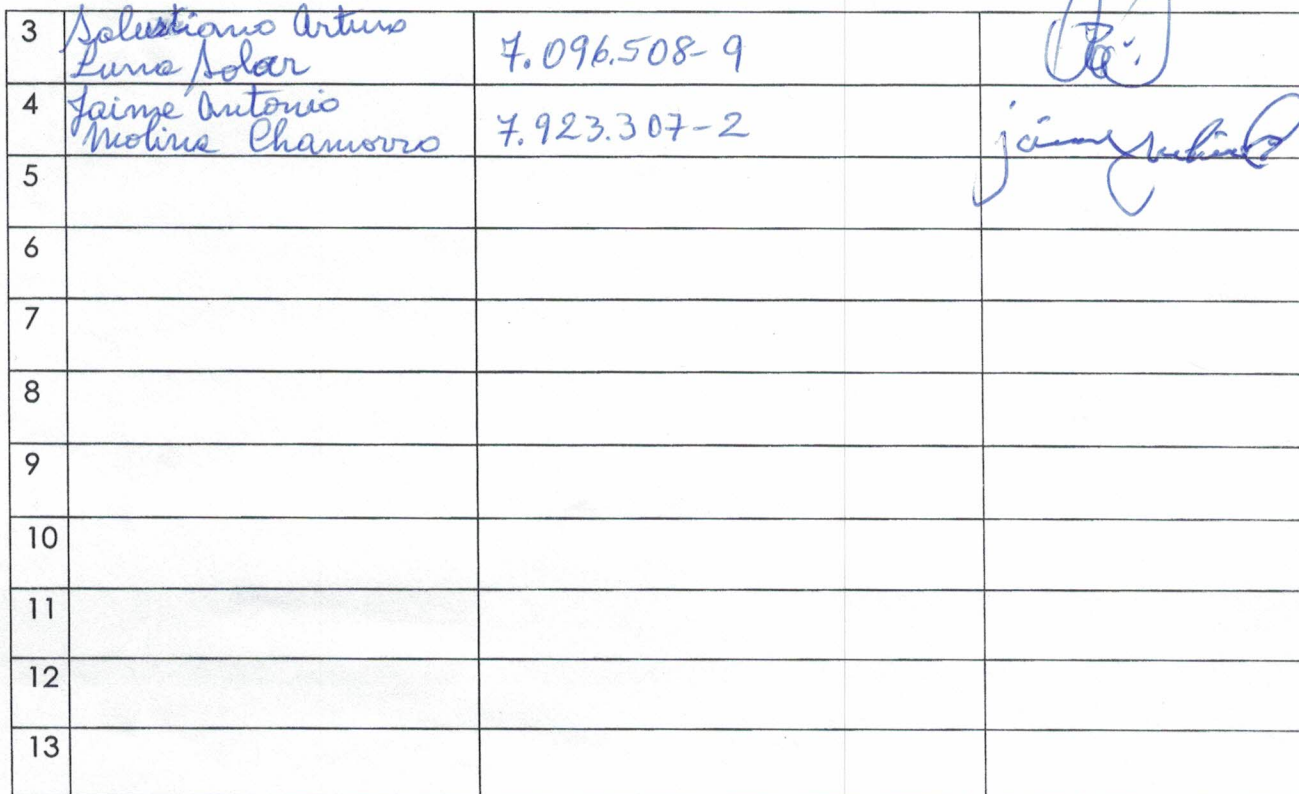 3 Salustiano Arturo
Luna Solar 7.096.508-9
4 Jaime Antonio
Molina Chamorro 7.923.307-2
jaime
5
6
7
8
9
10
11
12
13